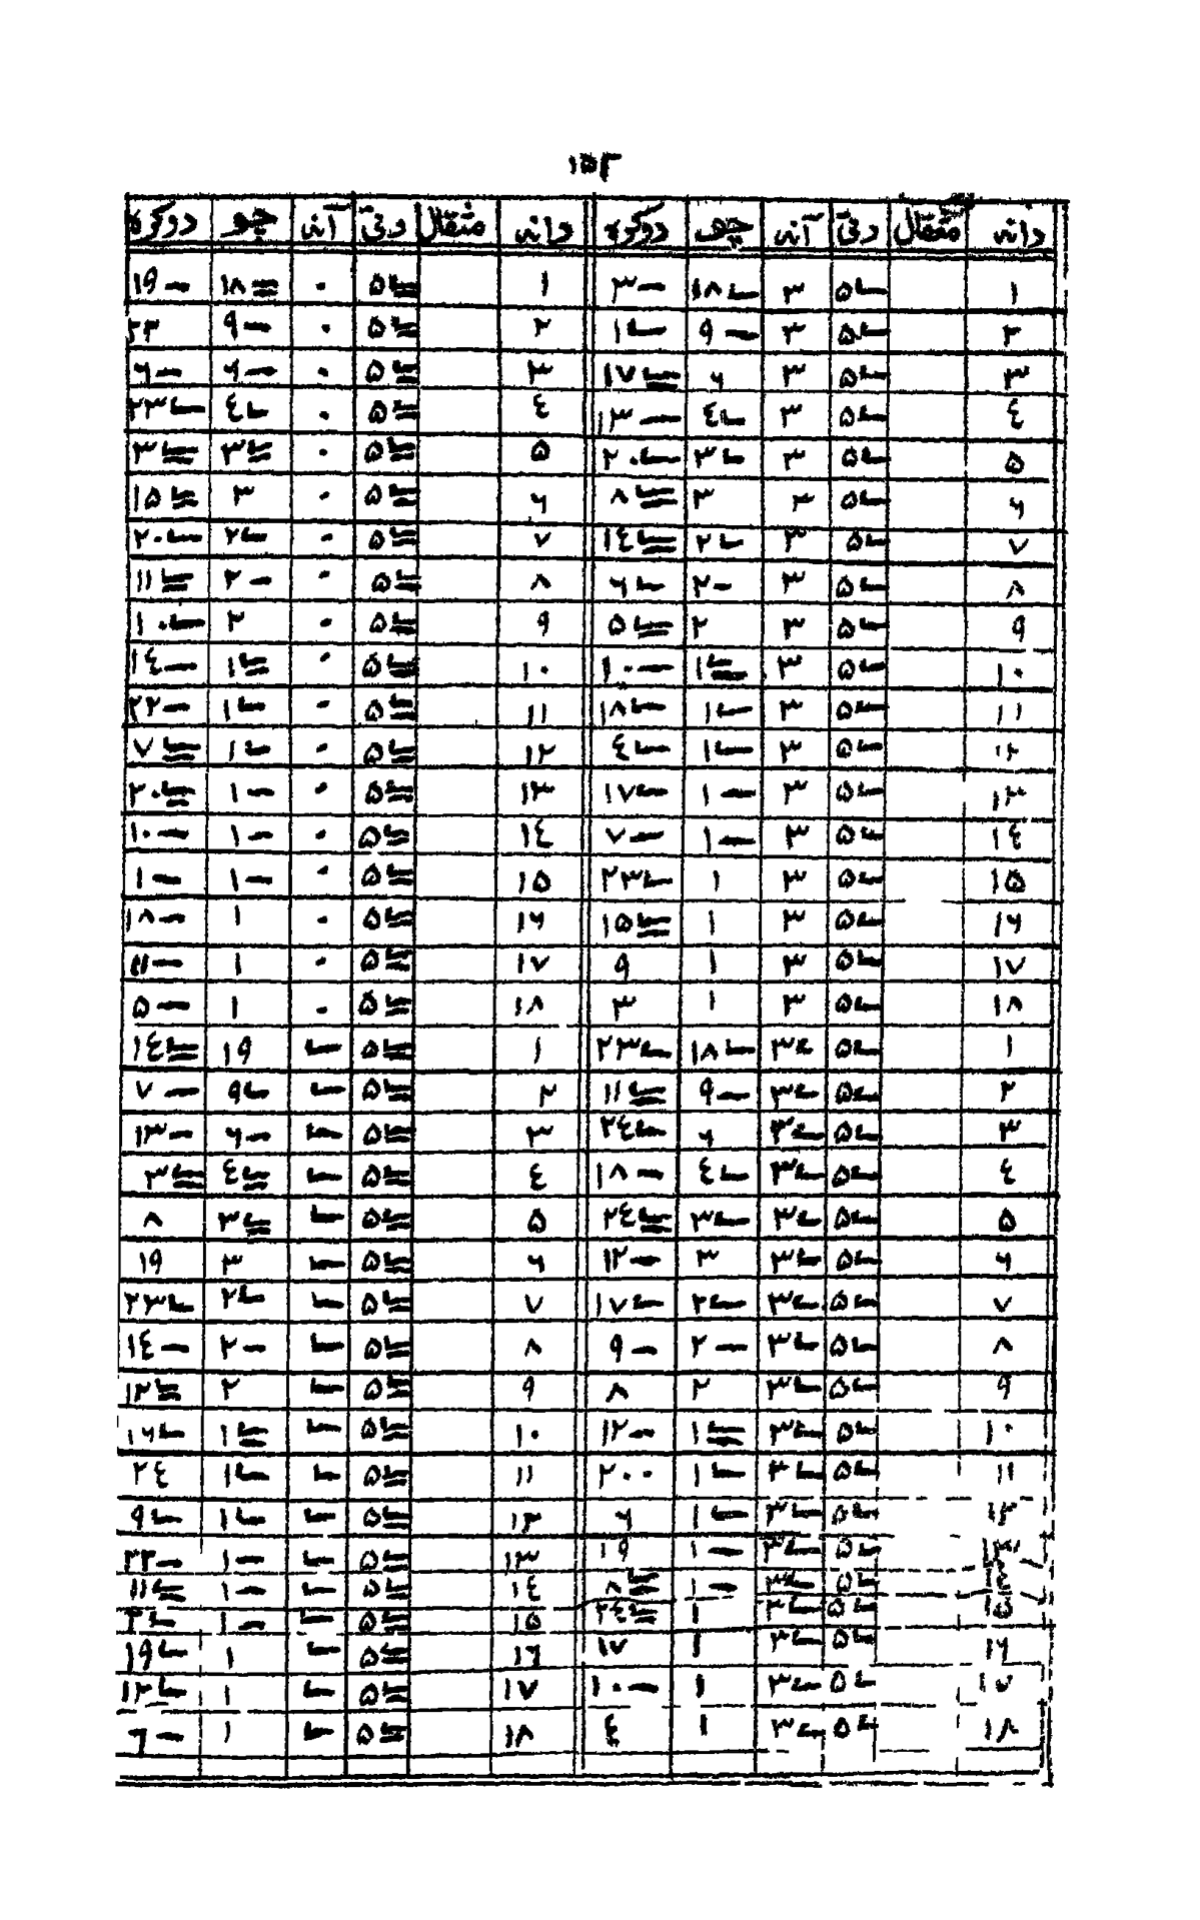 ١٥٢
دانه مثقال رتي آنه چو دوكره دانه مثقال رتي آنه چو دوكره
١ ٥ ٣ ١٨ ٣ ١ ٥ ٠ ١٨ ١٩
٢ ٥ ٣ ٩ ١ ٢ ٥ ٠ ٩
٣ ٥ ٣ ٦ ١٧ ٣ ٥ ٠ ٦ ٦
٤ ٥ ٣ ٤ ١٣ ٤ ٥ ٠ ٤ ٢٣
٥ ٥ ٣ ٣ ٢٠ ٥ ٥ ٠ ٣ ٣
٦ ٥ ٣ ٣ ٨ ٦ ٥ ٠ ٣ ١٥
٧ ٥ ٣ ٢ ١٤ ٧ ٥ ٠ ٢ ٢٠
٨ ٥ ٣ ٢ ٦ ٨ ٥ ٠ ٢ ١١
٩ ٥ ٣ ٢ ٥ ٩ ٥ ٠ ٢ ١٠
١٠ ٥ ٣ ١ ١٠ ١٠ ٥ ٠ ١ ١٤
١١ ٥ ٣ ١ ١٨ ١١ ٥ ٠ ١ ٢٢
١٢ ٥ ٣ ١ ٤ ١٢ ٥ ٠ ١ ٧
١٣ ٥ ٣ ١ ١٧ ١٣ ٥ ٠ ١ ٢٠
١٤ ٥ ٣ ١ ٧ ١٤ ٥ ٠ ١ ١٠
١٥ ٥ ٣ ١ ٢٣ ١٥ ٥ ٠ ١ ١
١٦ ٥ ٣ ١ ١٥ ١٦ ٥ ٠ ١ ١٨
١٧ ٥ ٣ ١ ٩ ١٧ ٥ ٠ ١ ١١
١٨ ٥ ٣ ١ ٣ ١٨ ٥ ٠ ١ ٥
١ ٥ ٣ ١٨ ٢٣ ١ ٥ ١٩ ١٤
٢ ٥ ٣ ٩ ١١ ٢ ٥ ٩ ٧
٣ ٥ ٣ ٦ ٢٤ ٣ ٥ ٦ ١٣
٤ ٥ ٣ ٤ ١٨ ٤ ٥ ٤ ٣
٥ ٥ ٣ ٣ ٢٤ ٥ ٥ ٣ ٨
٦ ٥ ٣ ٣ ١٢ ٦ ٥ ٣ ١٩
٧ ٥ ٣ ٢ ١٧ ٧ ٥ ٢ ٢٣
٨ ٥ ٣ ٢ ٩ ٨ ٥ ٢ ١٤
٩ ٥ ٣ ٢ ٨ ٩ ٥ ٢ ١٢
١٠ ٥ ٣ ١ ١٢ ١٠ ٥ ١ ١٦
١١ ٥ ٣ ١ ٢٠ ١١ ٥ ١ ٢٤
١٢ ٥ ٣ ١ ٦ ١٢ ٥ ١ ٩
١٣ ٥ ٣ ١ ١٩ ١٣ ٥ ١ ٢٢
٥ ٣ ١ ٨ ١٤ ٥ ١ ١١
١٥ ٥ ٣ ١ ٢٤ ١٥ ٥ ١
١٦ ٥ ٣ ١ ١٧ ١٦ ٥ ١ ١٩
١٧ ٥ ٣ ١ ١٠ ١٧ ٥ ١ ١٢
١٨ ٥ ٣ ١ ٤ ١٨ ٥ ١ ٦